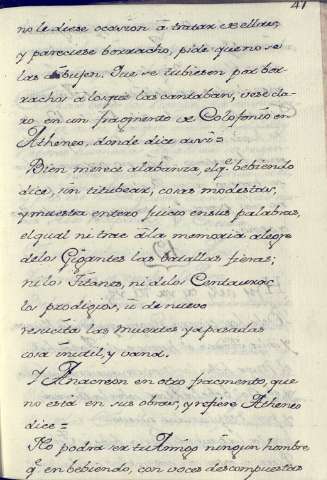 41
no le diese ocasion â tratar de ellas,
y pareciese borracho, pide que no se
las dibujen. Que se tubiesen por bor-
rachos â los que las cantaban, vese cla-
ro en un fragmento de Colofonio en
Atheneo, donde dice assi=
Bien merece alabanza, el q.e bebiendo
dice, sin titubear, cosas modestas,
y muestra entero juicio en sus palabras,
el qual ni trae â la memoria alegre
de los Gigantes las batallas fieras;
ni los Titanes, ni de los Centauros
los prodigios, û de nuevo
resucita las muertes ya pasadas
cosa inutil, y vana.
Y Anacreon en otro fracmento, que
no está en sus obras, y refiere Atheneo
dice=
No podrá ser tu Amigo ningun hombre
q.e en bebiendo, con voces descompuestas